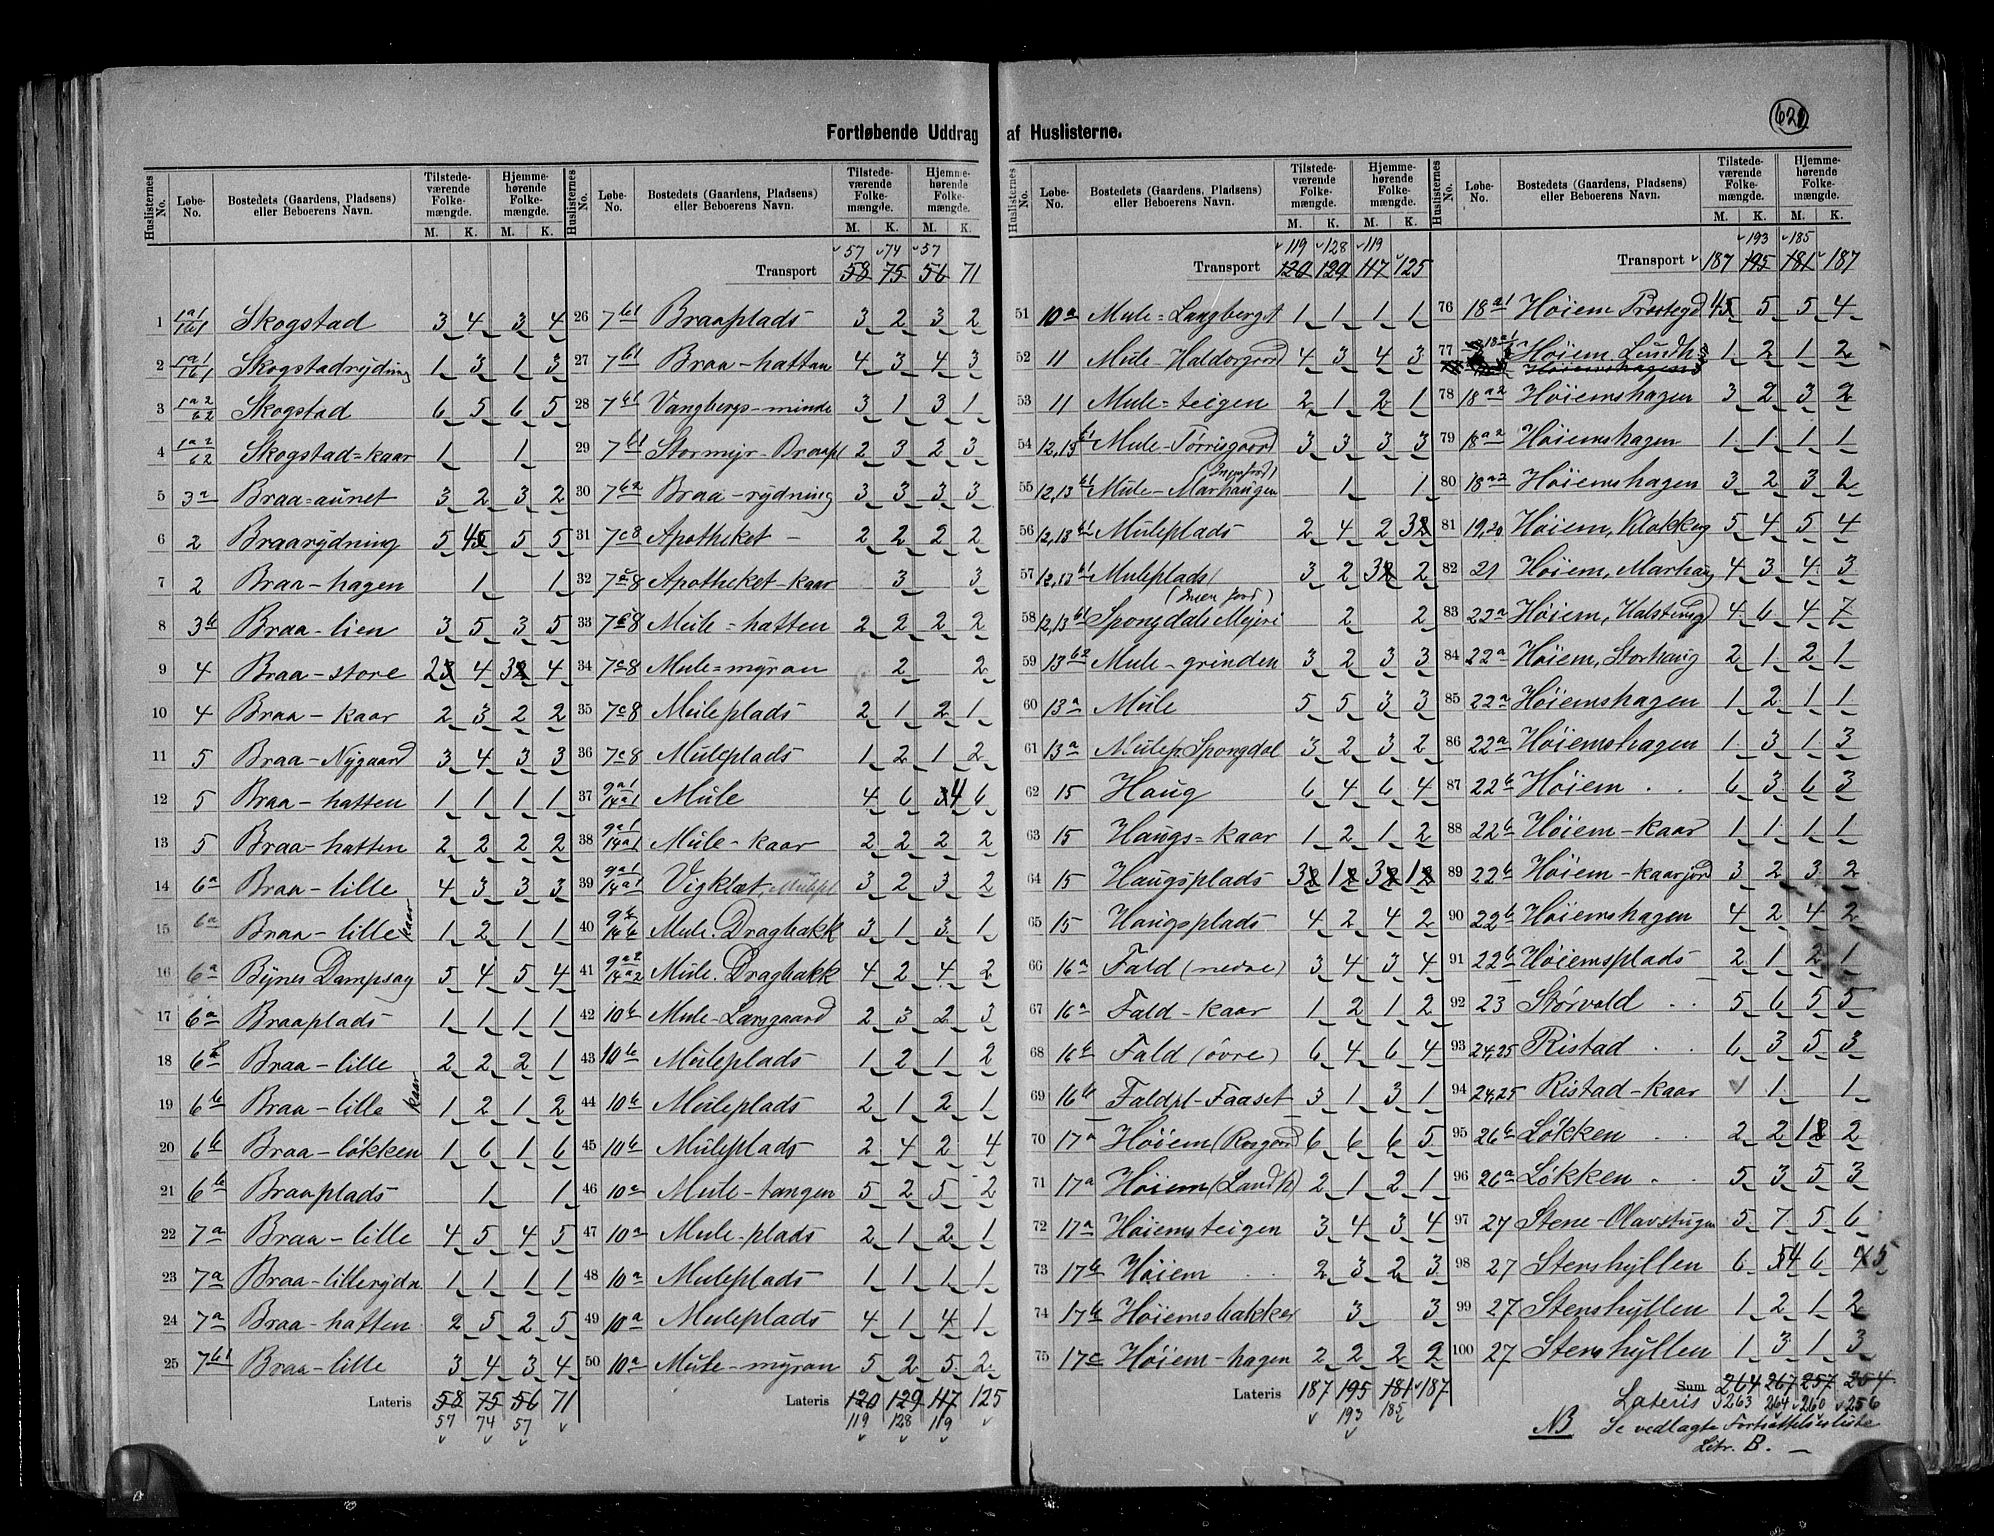 Fortløbende Uddrag af Huslisterne.
Huslisternes No. | Løbe-No. | Bostedets (Gaardens, Pladsens) eller Beboerens Navn. | Tilstedeværende Folkemængde. M. K. | Hjemmehørende Folkemængde. M. K.
1 1a1/1b1 Skogstad 3 4 3 4
2 1a1/1b1 Skogstadrydning 1 3 1 3
3 1a2/b2 Skogstad 6 5 6 5
4 1a2/b2 Skogstad=kaar 1 1
5 3a Braa=aunet 3 2 3 2
6 2 Braarydning 5 4 5 5
7 2 Braa-hagen 1 1
8 3b Braa-lien 3 5 3 5
9 4 Braa-store 2 4 3 4
10 4 Braa-kaar 2 3 2 2
11 5 Braa-Nygaard 3 4 3 3
12 5 Braa-hatten 1 1 1 1
13 5 Braa-hatten 2 2 2 2
14 6a Braa-lille 4 3 3 3
15 6a Braa-lille kaar 1 2 1 1
16 6a Bynes Dampsag 5 4 5 4
17 6a Braaplads 1 1 1 1
18 6b Braa-lille 2 2 2 1
19 6b Braa-lille kaar 1 2 1 2
20 6b Braa-løkken 1 6 1 6
21 6b Braaplads 1 1
22 7a Braa-lille 4 5 4 5
23 7a Braa-lillerydn 1 1 1 1
24 7a Braa-hatten 2 5 2 5
25 7b1 Braa-lille 3 4 3 4
Lateris 58 75 56 71
57 74 57
57 74 57
Transport 58 75 56 71
26 7b1 Braaplads 3 2 3 2
27 7b1 Braa-hattan 4 3 4 3
28 7b1 Vangbergs-minde 3 1 3 1
29 7b1 Stormyr-Braapl 2 3 2 3
30 7b2 Braa-rydning 3 3 3 3
31 7c8 Apotheket - 2 2 2 2
32 7c8 Apotheket-kaar 3 3
33 7c8 Mule=hatten 2 2 2 2
34 7c8 Mule=myran 2 2
35 7c8 Muleplads 2 1 2 1
36 7c8 Muleplads 1 2 1 2
37 9a1/14a1 Mule 4 6 4 6
38 9a1/14a1 Mule-kaar 2 2 2 2
39 9a1/14a1 Vigklæt, Mulepl 3 2 3 2
40 9b/14b Mule. Dragbakk 3 1 3 1
41 9a2/14a2 Mule. Dragbakk 4 2 4 2
42 10b Mule-Larsgaard 2 3 2 3
43 10b Muleplads 1 2 1 2
44 10b Muleplads 2 1 2 1
45 10b Muleplads 2 4 2 4
46 10a Mule-tangen 5 2 5 2
47 10a Mule-plads 2 1 2 1
48 10a Muleplads 1 1 1 1
49 10a Muleplads 4 1 4 1
50 10a Mule-myran 5 2 5 2
Lateris 120 129 117 125
119 128 119
119 128 119
Transport 120 129 117 125
51 10a Mule=Langberget 1 1 1 1
52 11 Mule-Haldorgjord 4 3 4 3
53 11 Mule=teigen 2 1 2 1
54 12,13b1 Mule-Tørrisgaard 3 3 3 3
55 12,13b1 Mule-Marhaugen (Ingen jord) 1 1
56 12,13b1 Muleplads 2 4 2 3
57 12,13b1 Muleplads (Ingen jord) 3 2 3 2
58 12,13b1 Spongdals Mejeri 2 2
59 13b2 Mule-grinden 3 2 3 3
60 13a Mule 5 5 3 3
61 13a Mulep. Spongdal 3 2 3 2
62 15 Haug 6 4 6 4
63 15 Haugs=kaar 1 2 1 2
64 15 Haugsplads 3 1 3 1
65 15 Haugsplads 4 2 4 2
66 16a Fald (nedre) 3 4 3 4
67 16a Fald-kaar 1 2 1 2
68 16b Fald (øvre) 6 4 6 4
69 16b Faldpl-Faaset 3 1 3 1
70 17a Høiem (Rosgaard 6 6 6 5
71 17a Høiem (Landh) 2 1 2 1
72 17a Høiemsteigen 3 4 3 4
73 17b Høiem 2 3 2 3
74 17b Høiemsbakken 3 3
75 17c Høiem-hagen 2 2 2 2
Lateris 187 195 181 187
193 185
620
193 185
Transport 187 195 181 187
76 18a1 Høiem Prestegd 4 5 5 4
77 18a1 Høiem, Lundh. 1 2 1 2
78 18a2 Høiemshagen 3 2 3 2
79 18a2 Høiemshagen 1 1 1 1
80 18a2 Høiemshagen 3 2 3 2
81 19,20 Høiem, Klokkerg 5 4 5 4
82 21 Høiem, Marhaug 4 3 4 3
83 22a Høiem, Halstengd 4 6 4 7
84 22a Høiem, Storhaug 2 1 2 1
85 22a Høiemshagen 1 2 1 1
86 22a Høiemshagen 1 3 1 3
87 22b Høiem . . 6 3 6 3
88 22b Høiem-kaar 1 1 1 1
89 22b Høiem-kaarjord 3 2 3 2
90 22b Høiemshagen 4 2 4 2
91 22b Høiemsplads 2 1 2 1
92 23 Størvold . . 5 6 5 5
93 24,25 Ristad . . 6 3 5 3
94 24,25 Ristad-kaar 1 1
95 26b Løkken . . 2 2 1 2
96 26a Løkken . . 5 3 5 3
97 27 Stene-Olavstugen 5 7 5 6
98 27 Stenshyllen 6 4 6 5
99 27 Stenshyllen 1 2 1 2
100 27 Stenshyllen 1 3 1 3
Sum 264 267 257 254
Lateris 263 264 260 256
NB Se vedlagte Fortsættelsesliste
Litr. B. -